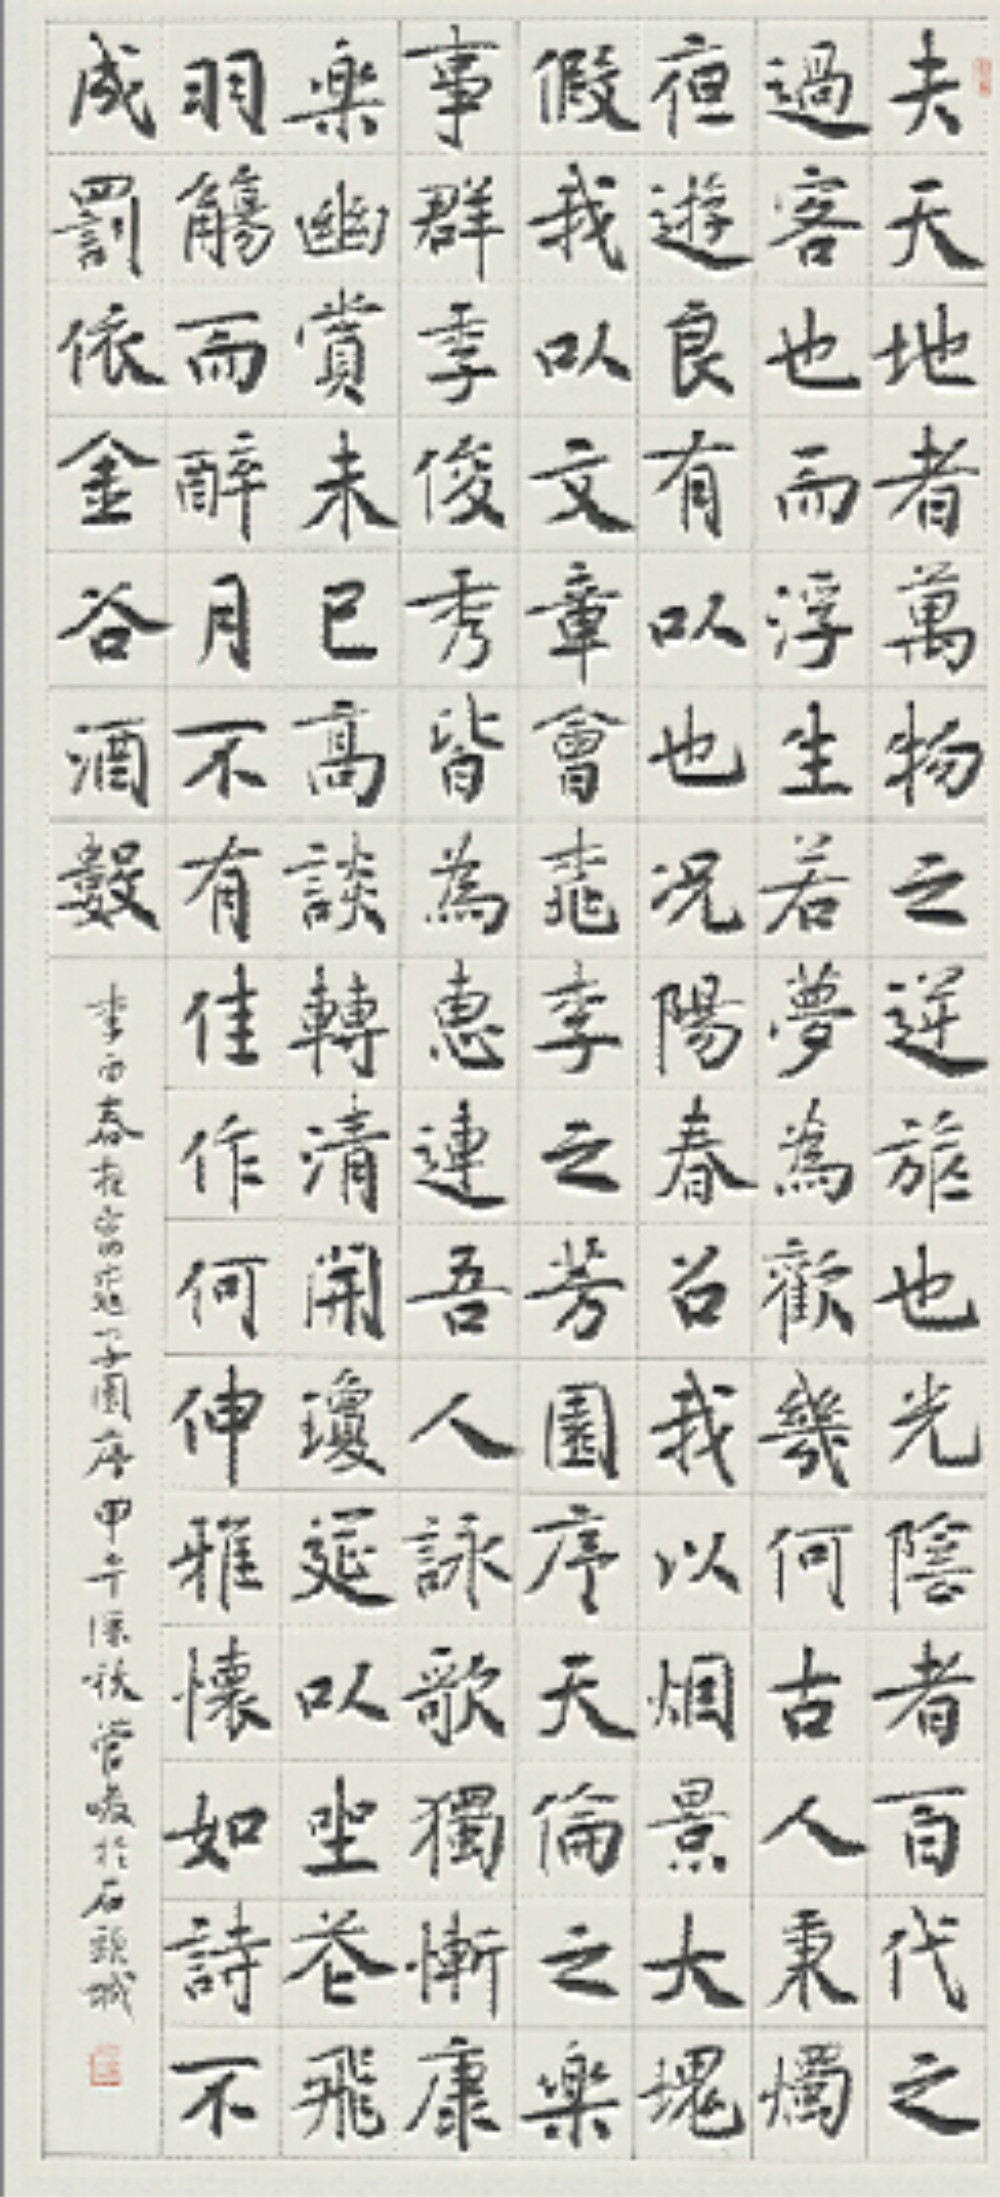 夫天地者萬物之逆旅也光陰者百代之
過客也而浮生若夢為歡幾何古人秉燭
夜遊良有以也况陽春召我以烟景大塊
假我以文章會桃李之芳園序天倫之樂
事群季俊秀皆為惠連吾人詠歌獨慚康
樂幽賞未已高談轉清開瓊筵以坐花飛
羽觴而醉月不有佳作何伸雅懷如詩不
成罰依金谷酒數
李白春夜宴桃李園序甲午深秋管峻於石頭城